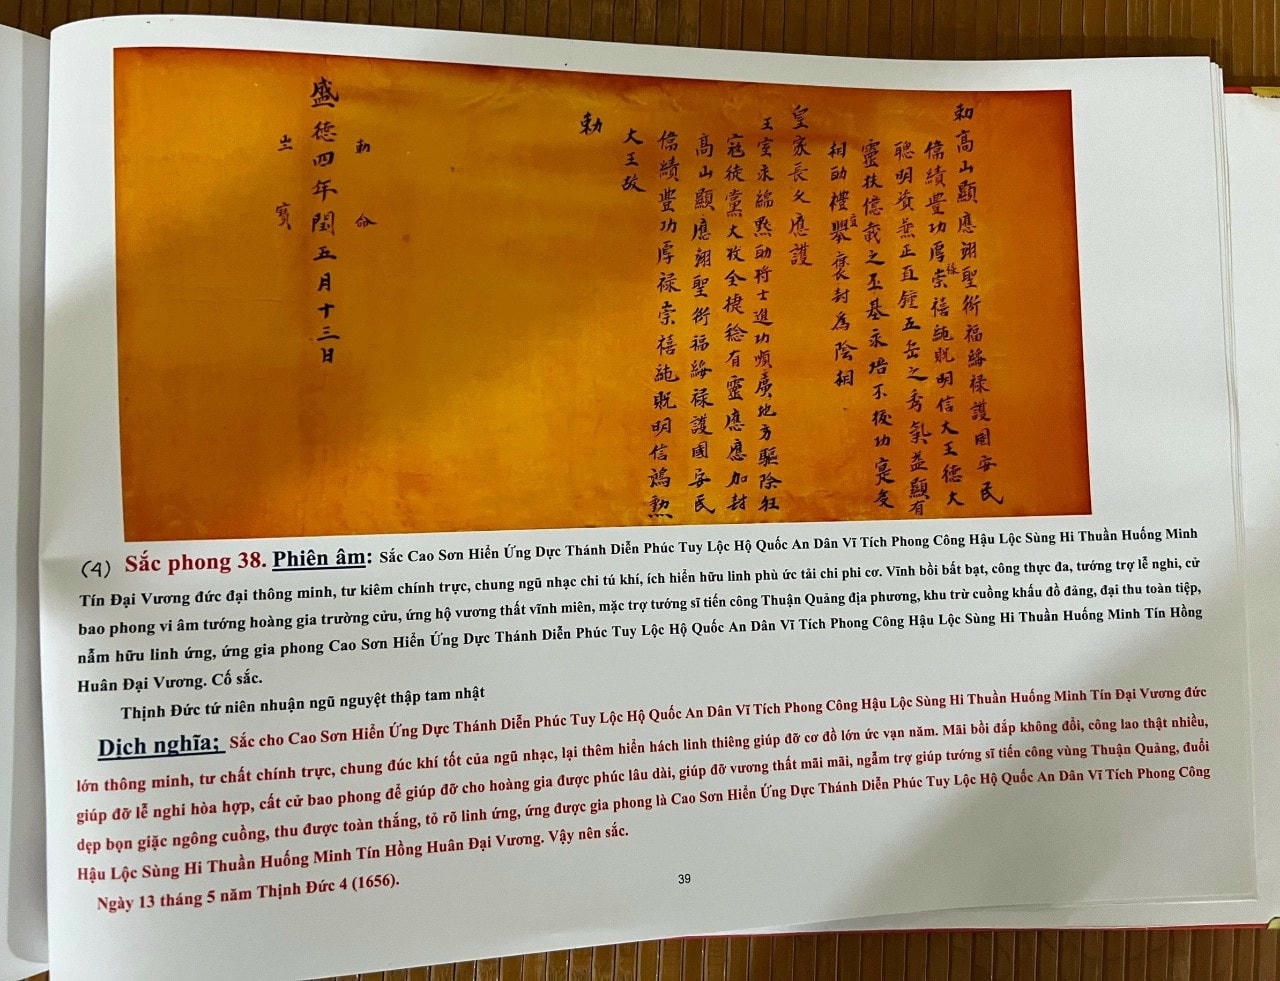 勅高山顯應翊聖衍福綏祿護國安民
偉績豐功厚祿崇禧純貺明信大王德大
聰明資兼正直鍾五岳之秀氣益顯有
靈扶億載之丕基永培不拔功寔多
相助禮宜舉褒封為陰相
皇家長久應護
王室永綿黙助將士進功順廣地方驅除狂
寇徒黨大攻全捷稔有靈應應加封
高山顯應翊聖衍福綏祿護國安民
偉績豐功厚祿崇禧純貺明信鴻勲
大王故
勅
勅命
盛德四年閏五月十三日
之寳
(4) Sắc phong 38. Phiên âm: Sắc Cao Sơn Hiển Ứng Dực Thánh Diễn Phúc Tuy Lộc Hộ Quốc An Dân Vĩ Tích Phong Công Hậu Lộc Sùng Hi Thuần Huống Minh
Tín Đại Vương đức đại thông minh, tư kiêm chính trực, chung ngũ nhạc chi tú khí, ích hiển hữu linh phù ức tải chi phi cơ. Vĩnh bồi bất bạt, công thực đa, tướng trợ lễ nghi, cử
bao phong vi âm tướng hoàng gia trường cửu, ứng hộ vương thất vĩnh miên, mặc trợ tướng sĩ tiến công Thuận Quảng địa phương, khu trừ cuồng khấu đồ đảng, đại thu toàn tiệp,
nẫm hữu linh ứng, ứng gia phong Cao Sơn Hiển Ứng Dực Thánh Diễn Phúc Tuy Lộc Hộ Quốc An Dân Vĩ Tích Phong Công Hậu Lộc Sùng Hi Thuần Huống Minh Tín Hồng
Huân Đại Vương. Cố sắc.
Thịnh Đức tứ niên nhuận ngũ nguyệt thập tam nhật
Dịch nghĩa: Sắc cho Cao Sơn Hiển Ứng Dực Thánh Diễn Phúc Tuy Lộc Hộ Quốc An Dân Vĩ Tích Phong Công Hậu Lộc Sùng Hi Thuần Huống Minh Tín Đại Vương đức
lớn thông minh, tư chất chính trực, chung đúc khí tốt của ngũ nhạc, lại thêm hiển hách linh thiêng giúp đỡ cơ đồ lớn ức vạn năm. Mãi bồi đắp không đổi, công lao thật nhiều,
giúp đỡ lễ nghi hòa hợp, cất cử bao phong để giúp đỡ cho hoàng gia được phúc lâu dài, giúp đỡ vương thất mãi mãi, ngầm trợ giúp tướng sĩ tiến công vùng Thuận Quảng, đuổi
dẹp bọn giặc ngông cuồng, thu được toàn thắng, tỏ rõ linh ứng, ứng được gia phong là Cao Sơn Hiển Ứng Dực Thánh Diễn Phúc Tuy Lộc Hộ Quốc An Dân Vĩ Tích Phong Công
Hậu Lộc Sùng Hi Thuần Huống Minh Tín Hồng Huân Đại Vương. Vậy nên sắc.
Ngày 13 tháng 5 năm Thịnh Đức 4 (1656).
39